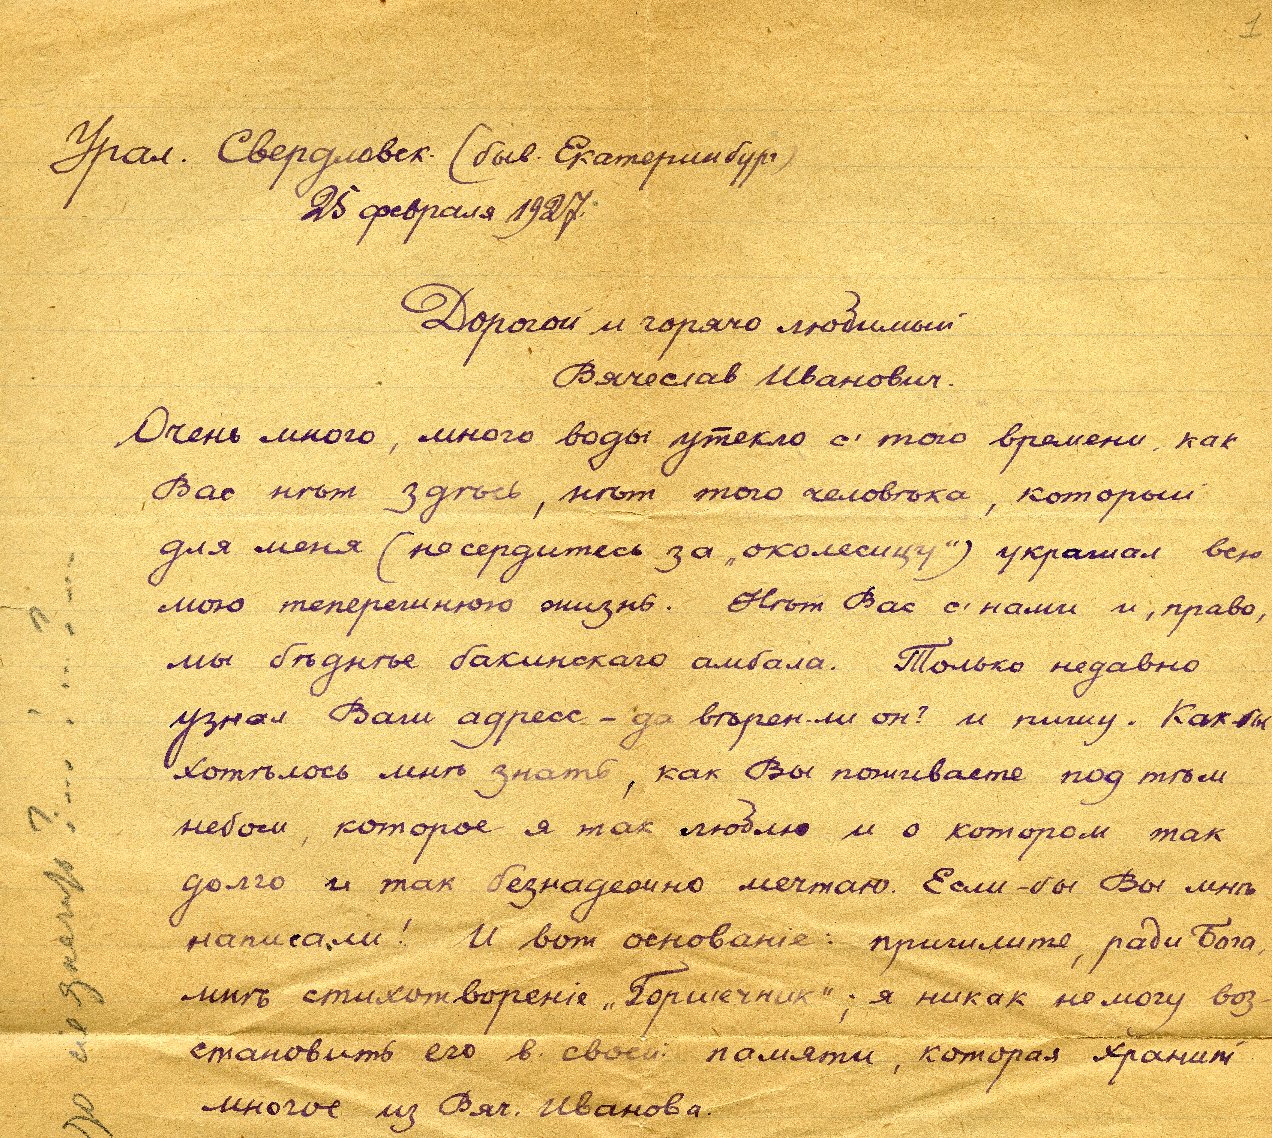 1
Урал. Свердловск. (быв. Екатеринбург)
25 февраля 1927.
Дорогой и горячо любимый
Вячеслав Иванович.
Очень много, много воды утекло с' того времени, как
Вас нѣт здѣсь, нѣт того человѣка, который
для меня (не сердитесь за „околесицу“) украшал всю
мою теперешнюю жизнь. Нѣт Вас с' нами и, право,
мы бѣднѣе бакинскаго амбала. Только недавно
узнал Ваш адресс – да вѣрен-ли он? и пишу. Как-бы
хотѣлось мнѣ знать, как Вы поживаете под тѣм
небом, которое я так люблю и о котором так
долго и так безнадежно мечтаю. Если-бы Вы мнѣ
написали! И вот основаніе: пришлите, ради Бога,
мнѣ стихотвореніе „Горшечник“; я никак не могу воз-
становить его в своей памяти, которая хранит
многое из Вяч. Иванова.